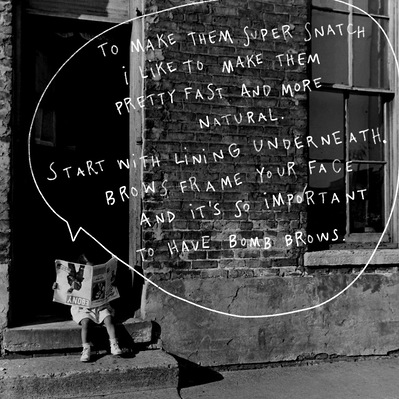 TO MAKE THEM SUPER SNATCH
i LIKE TO MAKE THEM
PRETTY FAST AND MORE
NATURAL.
START WITH LiNiNG UNDERNEATH.
BROWS FRAME YOUR FACE
AND iT'S SO IMPORTANT
TO HAVE BOMB BROWS.
EBONY